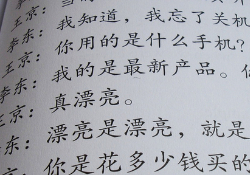 李东：我知道，我忘了关机
王京：你用的是什么手机？
李东：我的是最新产品。你
王京：真漂亮。
李东：漂亮是漂亮，就是
王京：你是花多少钱买的